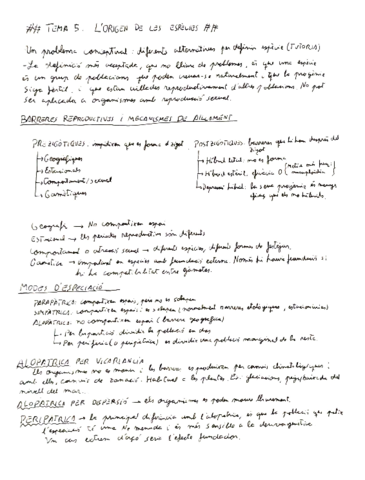 ## TEMA 5. L'ORIGEN DE LES ESPÈCIES ##
Un problema conceptual: diferents alternatives per definir espècie (TUTORIA)
-La definició més acceptada, que no lliure de problemes, és que una espècie
és un grup de poblacions que poden creuar-se naturalment, que la progènie
sigui fèrtil, i que estan aïllades reproductivament d'altres poblacions. No pot
ser aplicada a organismes amb reproducció sexual.
BARRERES REPRODUCTIVES I MECANISMES DE AÏLLAMENT
PREZIGÒTIQUES: impedeixen que es formi el zigot
Geogràfiques
Estacionals
Comportament sexual
Gamètiques
POSTZIGÒTIQUES: barreres que hi han després del
zigot
Híbrid letal: no es forma
Híbrid estèril: eficàcia 0
Depressió híbrid: la seva progènie és menys
eficaç que els no híbrids.
Geogràfic → No comparteixen espai
Estacional → Els períodes reproductius són diferents
Comportament o atracció sexual → diferents espècies, diferents formes de festejar.
Gamètica → important en espècies amb fecundació externa. Només hi haurà fecundació si
hi ha compatibilitat entre gàmetes.
MODES D'ESPECIACIÓ
PARAPÀTRICA: comparteixen espais, però no es solapen
SIMPÀTRICA: comparteixen espai i es solapen (normalment barreres etològiques, estacionals)
ALOPÀTRICA: no comparteixen espai (barrera geogràfica)
Per partició divideix la població en dos
Per perifèrica (o peripàtrica) es divideix una població marginal de la resta
ALOPÀTRICA PER VICARIÀNCIA
Els organismes no es mouen, les barreres es produeixen per canvis climatològics i
amb ells, canvis de zonació. Habitual a les plantes Ex: glaciacions,
nivell del mar...
ALOPÀTRICA PER DISPERSIÓ → els organismes es poden moure lliurement.
PERIPÀTRICA → la principal diferència amb l'alopàtrica, és que la població que pateix
l'especiació és una N menuda i és més sensible a la deriva genètica
Un cas extrem d'açò seria l'efecte fundador.